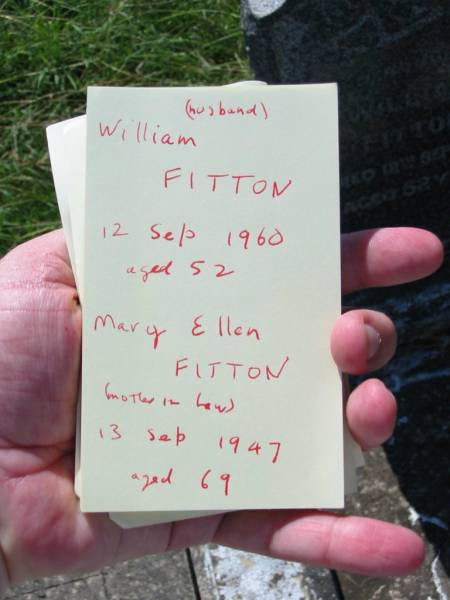 (husband)
William
FITTON
12 Sep 1960
aged 52
Mary Ellen
FITTON
(mother in law)
13 Sep 1947
aged 69
FITTON